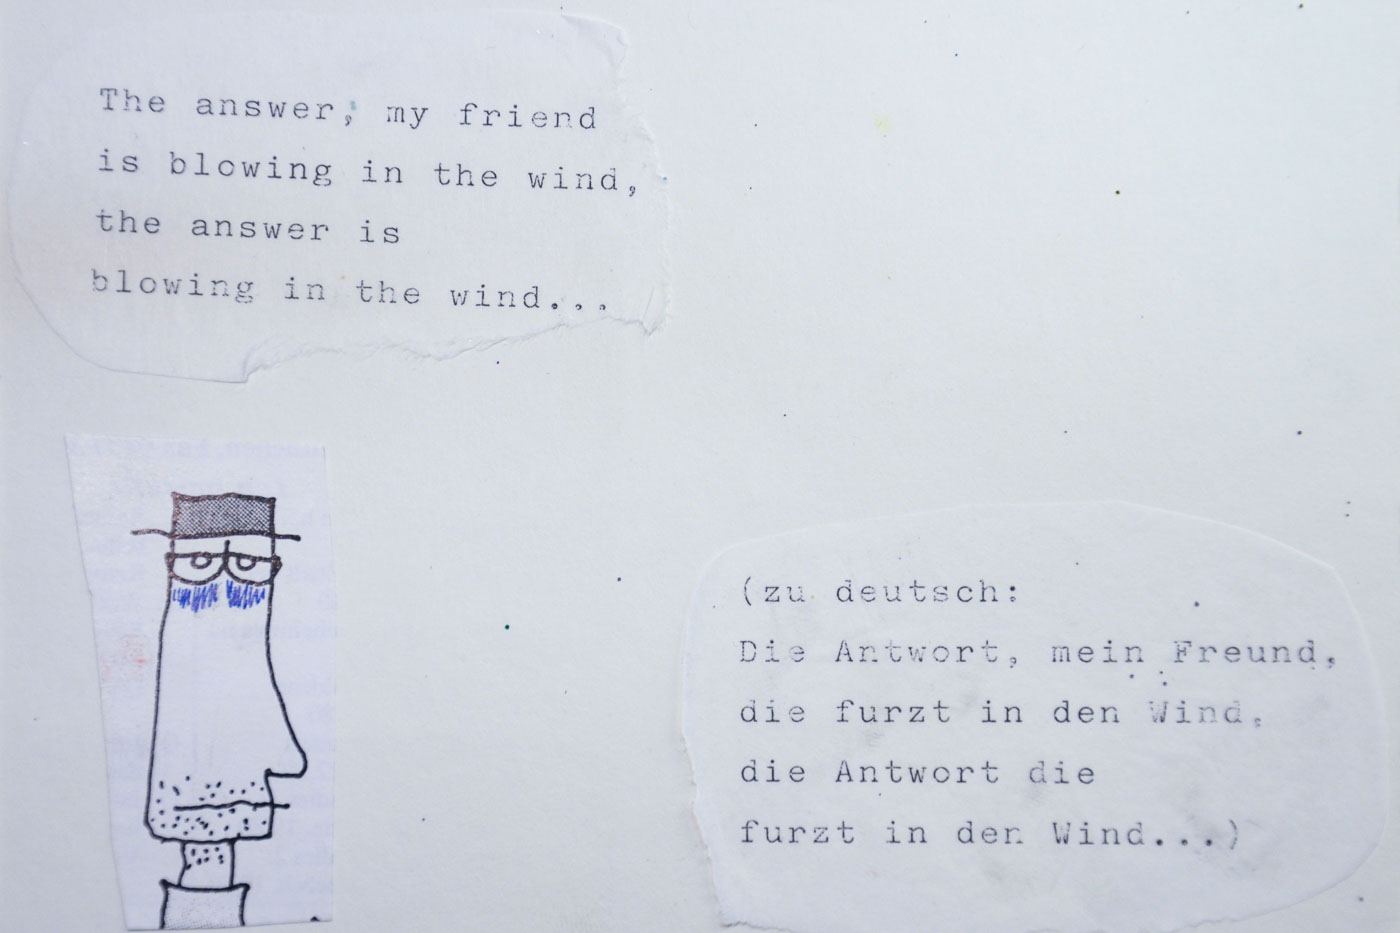 The answer, my friend
is blowing in the wind,
the answer is
blowing in the wind...
(zu deutsch:
Die Antwort, mein Freund,
die furzt in den Wind,
die Antwort die
furzt in den Wind...)